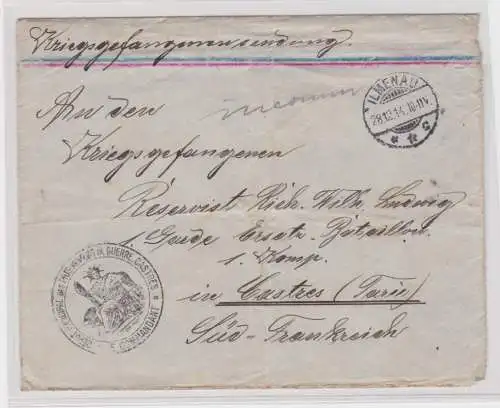 Kriegsgefangenensendung.
ILMENAU
28.12.14. 10-11V.
* * c
An den
inconnu
Kriegsgefangenen
Reservist Rich. Wilh. Ludwig
1. Garde Ersatz-Bataillon
1. Komp.
in Castres (Tarn)
Süd-Frankreich
GUERRE, CASTRES *
COMMANDANT